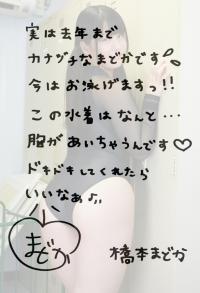 実は去年まで
カナヅチなまどかです
今はお泳げますっ!!
この水着はなんと…
胸があいちゃうんです♡
ドキドキしてくれたら
いいなぁ♪
まどか
橋本まどか